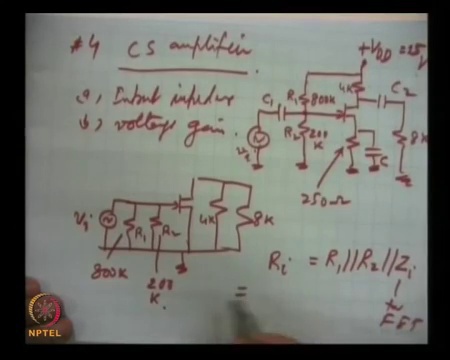 #4 CS amplifier
a, Input impedance
b, voltage gain.
+VDD = 25V
4K
C2
C1
R1
800K
R2
200
K
8K
C
vi
250Ω
Vi
R1
R2
4K
8K
800K
200
K.
Ri = R1 || R2 || Zi
FET
=
NPTEL